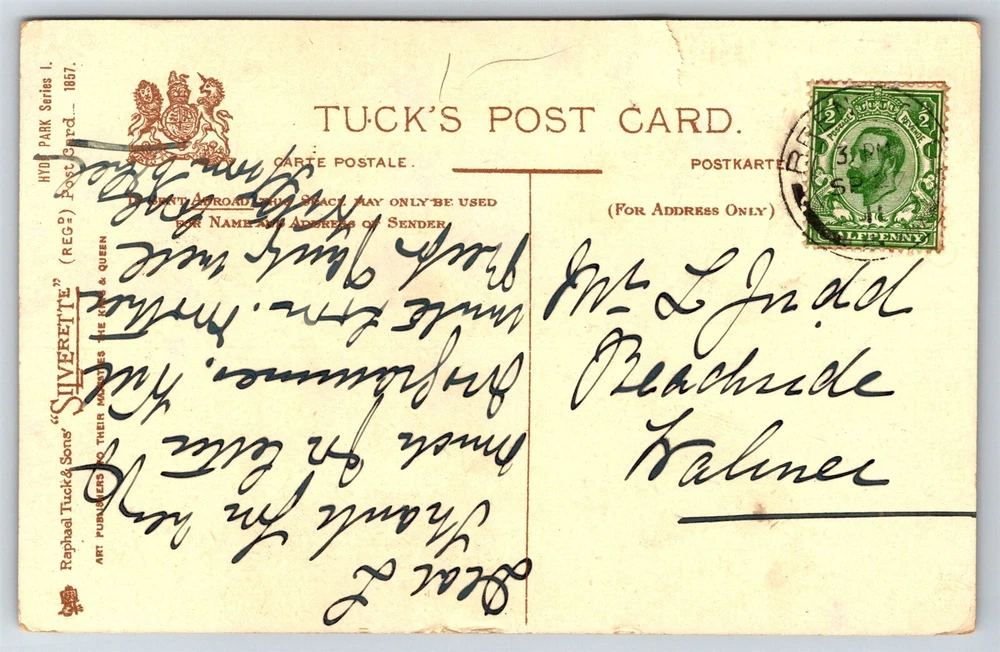 HYDE PARK Series I.
Raphael Tuck & Sons' "SILVERETTE" (REGD.) Post Card 1857.
ART PUBLISHERS TO THEIR MAJESTIES THE KING & QUEEN
TUCK'S POST CARD.
CARTE POSTALE.
POSTKARTE
IF SENT ABROAD THIS SPACE MAY ONLY BE USED
FOR NAME AND ADDRESS OF SENDER
(FOR ADDRESS ONLY)
1/2 1/2
POSTAGE REVENUE
HALFPENNY
3 PM
SP
11
Mr L Judd
Beachside
Walmer
Dear L
Thanks for very
much for letter &
programmes, Will
write soon. Mother
keeps pretty well
love
from